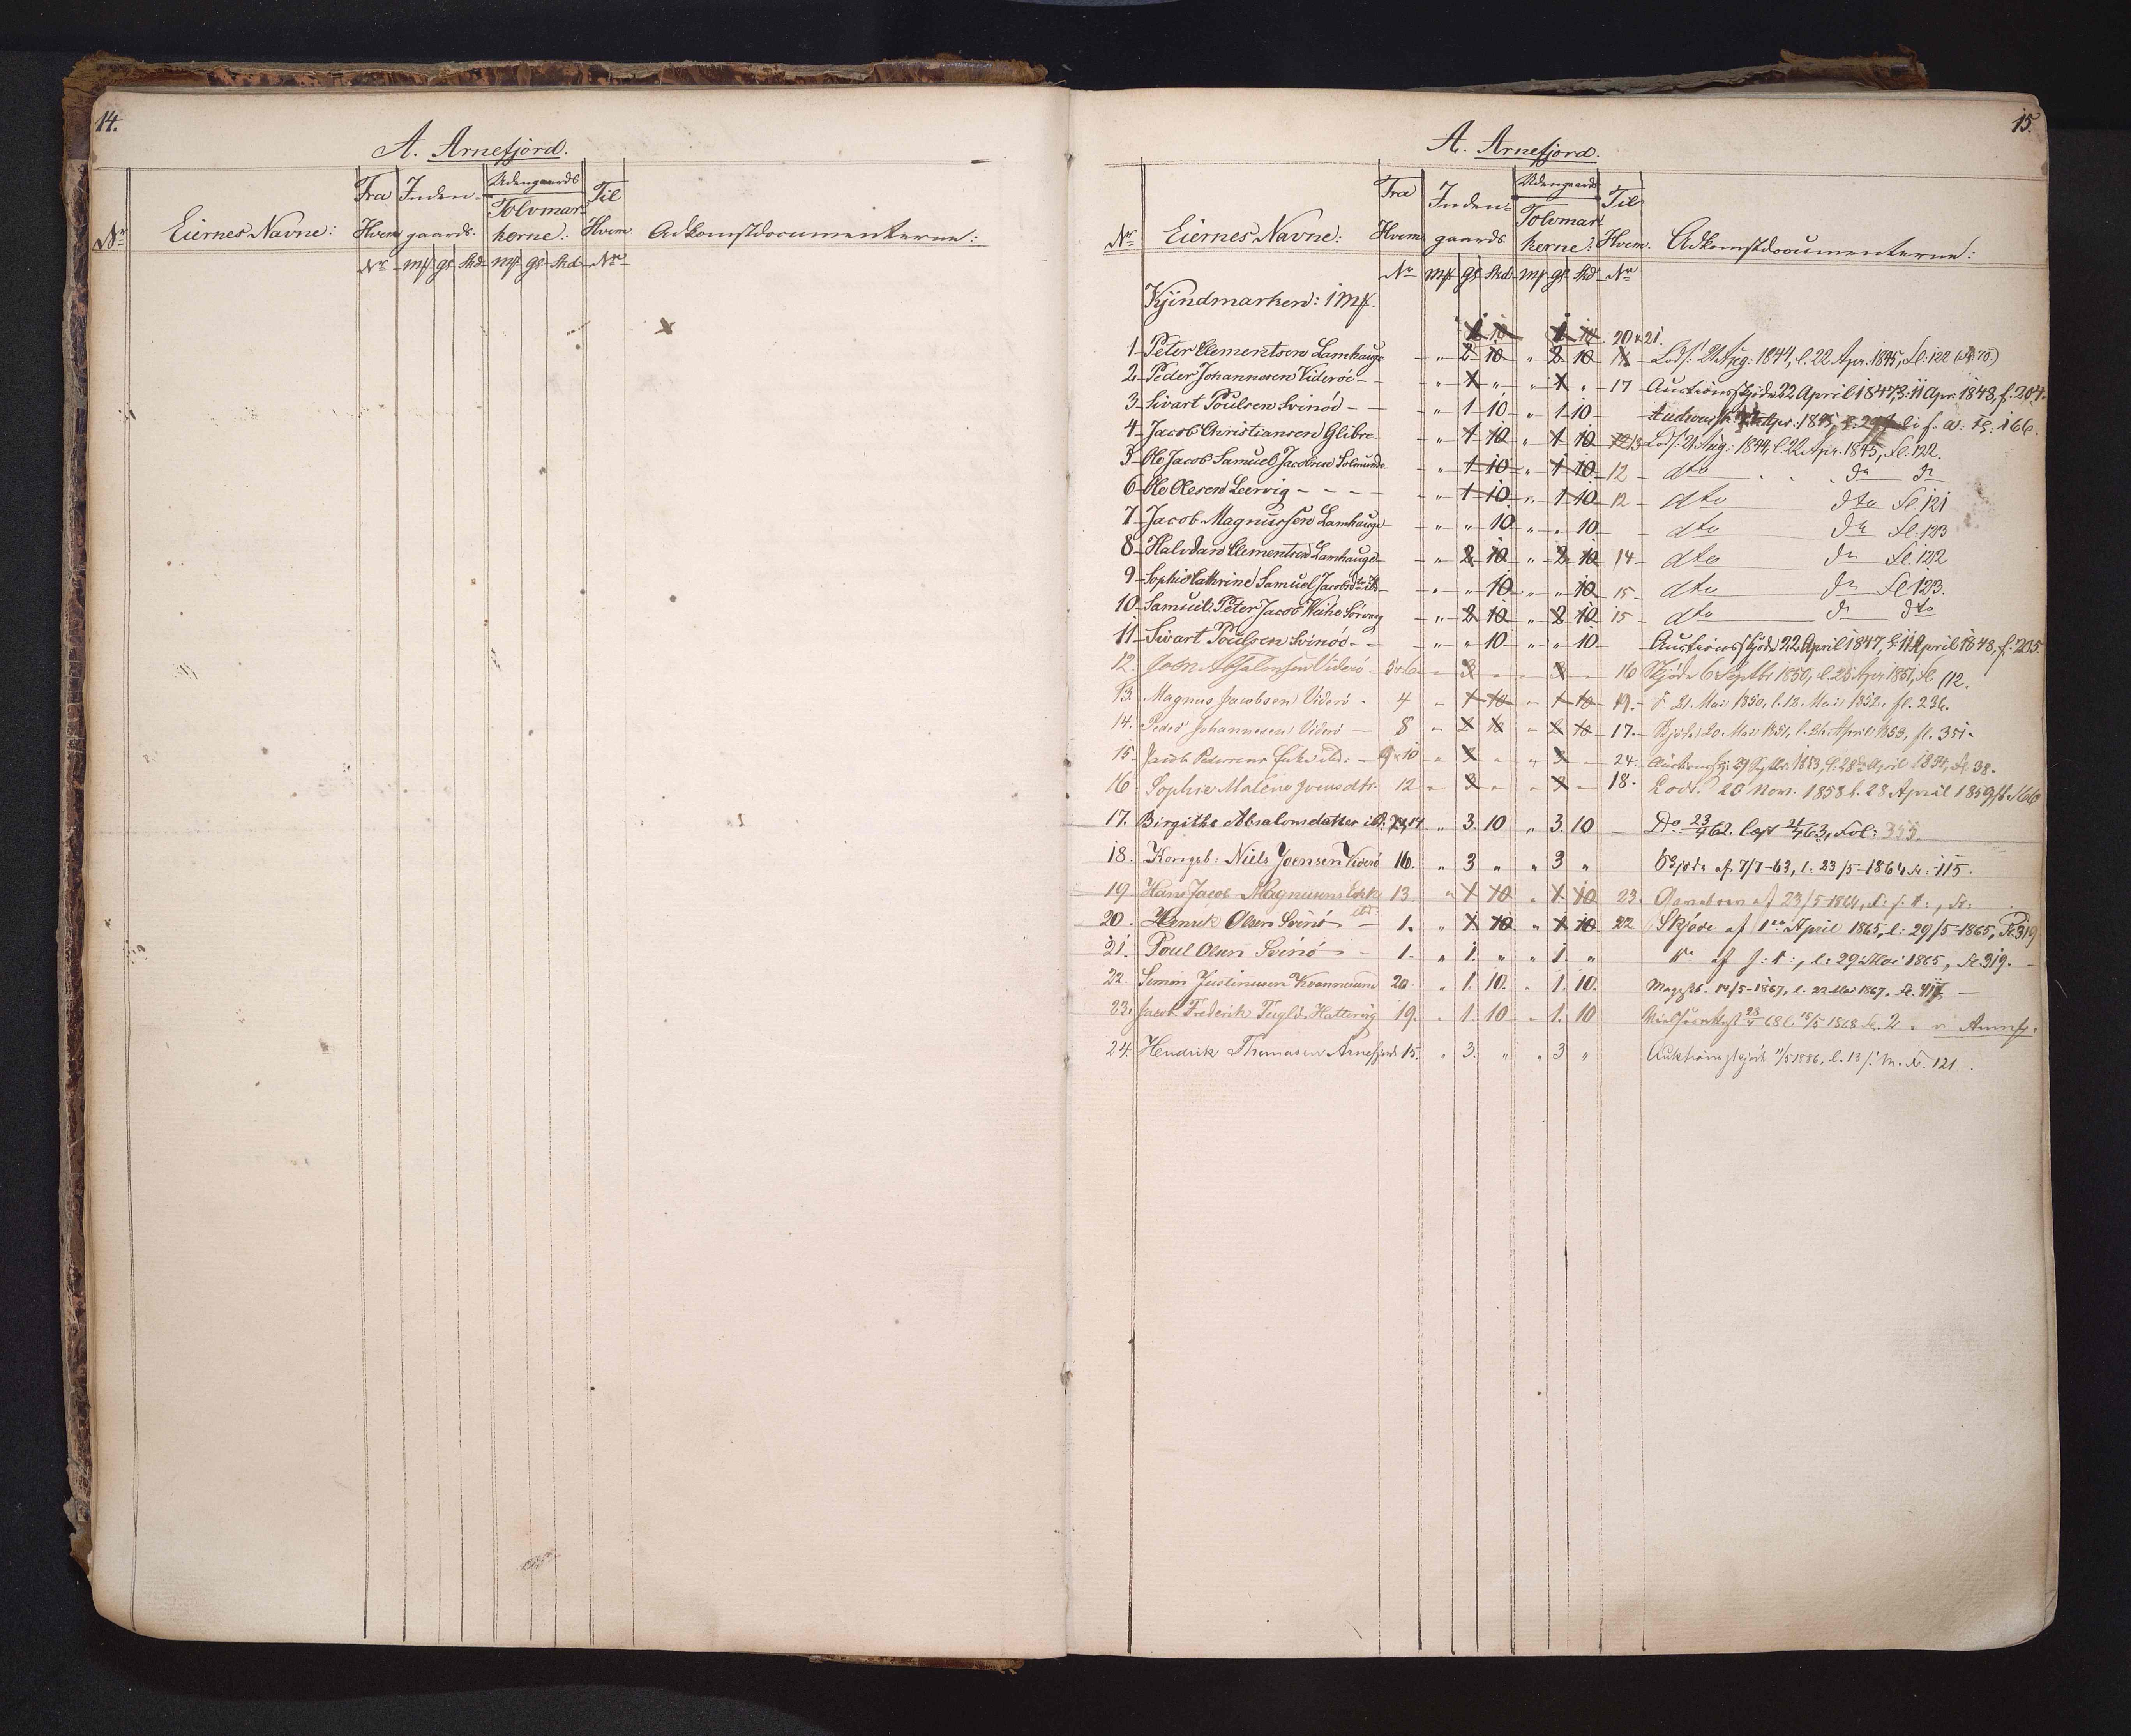 14.
A. Arnefjord.
Nr Eiernes Navne: Fra Hvem Inden- gaards. Udengaards Tolvmar- kerne: Til Hvem. Adkomstdocumenterne:
Nr mk gl Skd mk gl Skd Nr
15.
A. Arnefjord.
Nr Eiernes Navne: Fra Hvem Inden- gaards Udengaards Tolvmar- kerne: Til Hvem. Adkomstdocumenterne:
Nr mk gl Skd mk gl Skd Nr
Kyindmarken: 1 mk.
1 10 1 10 20 & 21.
1 Peter Clementsen Lamhauge " 2 10 " 2 10 Lods: 21 Aug: 1844, l. 22 Apr. 1845, Fl: 122
2 Peder Johannesen Videröe " 1 " " 1 " 17 Auctionsskjöde 22 April 1847, l: 11 Apr: 1848, f. 204.
3 Sivart Poulsen Svinöe " 1 10 " 1 10 Apr: 1845, f. a: Fl: 166.
4 Jacob Christiansen Glibre " 1 10 " 1 10 13 Lods: 21 Aug: 1844, l. 22 Apr. 1845, Fl. 122.
5 Ole Jacob Samuel Jacobsen Solmunde " 1 10 " 1 10 12 dto do do
6 Ole Olesen Leervig " 1 10 " 1 10 12 dto dto Fl. 121
7 Jacob Magnussen Lamhauge " " 10 " " 10 dto do Fl: 123
8 Halvdan Clementsen Lamhauge " 2 10 " 2 10 14 dto do Fl. 122
9 Sophie Cathrine Samuel Jacobsd " " 10 " " 10 15 dto do Fl 123.
10 Samuel Peter Jacob Weihe Sörvaag " 2 10 " 2 10 15 dto do dto
11 Sivart Poulsen Svinöe " " 10 " " 10 Auctionsskjöde 22 April 1847, l: 11 April 1848, f. 205.
12. Joen Absalonsen Viderö 5 & 6 " 3 " " 3 " 16 Skjöde 6 Septbr 1850, l. 25 Apr 1851, Fl. 112.
13. Magnus Jacobsen Viderö 4 " 1 10 " 1 10 19. 21. Mai 1850, l. 18. Mai 1852, fl. 236.
14. Peder Johannesen Viderö 8 " 2 10 " 2 10 17. Skjöde 20. Mai 1851, l. 26 April 1853, fl. 351.
15 Jacob Pedersens Enke ibd: 9 & 10 " 3 " " 3 " 24. Auctionssk: 29 Septbr. 1853, l. 28 April 1854, Fl 38.
16. Sophie Malene Joensdtr. 12 " 3 " " 3 " 18. Lods. 20 Nov. 1858 l. 28 April 1859
17. Birgithe Absalomsdatter ibd. 14 " 3. 10 " 3. 10 Do 23/4 62. læst 21/4 63, Fol: 355.
18. Kongsb: Niels Joensen Viderö 16. " 3 " " 3 " Skjöde af 7/7-63, l: 23/5-1864 Fl: 115.
19. Hans Jacob Magnussens Enke ibd: 13. " 1 10 " 1 10 23. af 23/5-1864,
20. Henrik Olsen Svinö 1. " 1 10 " 1 10. 22 Skjöde af 1ste April 1865, l: 29/5-1865, Fl 319
21. Poul Olsen Svinö 1. " 1. " " 1. " Do af l: 29 Mai 1865, Fl 319.
22. Simon Justinussen Kvannesund 20. " 1. 10. " 1. 10. 14/5-1867, l. 22 Mai 1867.
23. Jacob Frederik Fuglö Hattervig 19. " 1. 10 " 1. 10 15/5 1868 Fl. 2.
24. Hendrik Thomasen Arnefjord 15. " 3. " " 3 " Auktionsskjöde 11/5 1886, l. 13 s. M. Fl. 121.